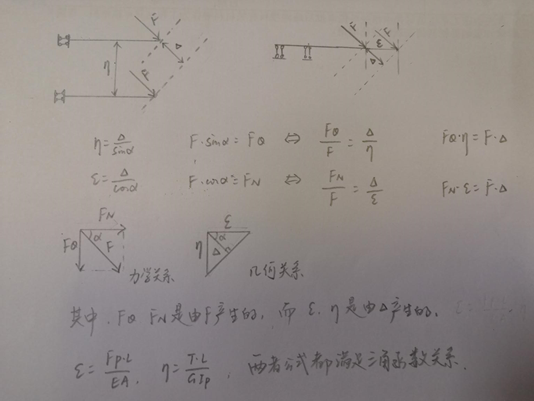 F
F
η
Δ
F
F
ε
Δ
η = Δ/sinα  F·sinα = FQ ⇔ FQ/F = Δ/η  FQ·η = F·Δ
ε = Δ/cosα  F·cosα = FN ⇔ FN/F = Δ/ε  FN·ε = F·Δ
FN
FQ α F
力学关系
ε
η α Δ
几何关系
其中，FQ FN是由F产生的，而 ε、η是由Δ产生的，
ε = Fp·L/EA ，η = T·L/GIp ，两者公式都满足三角函数关系。